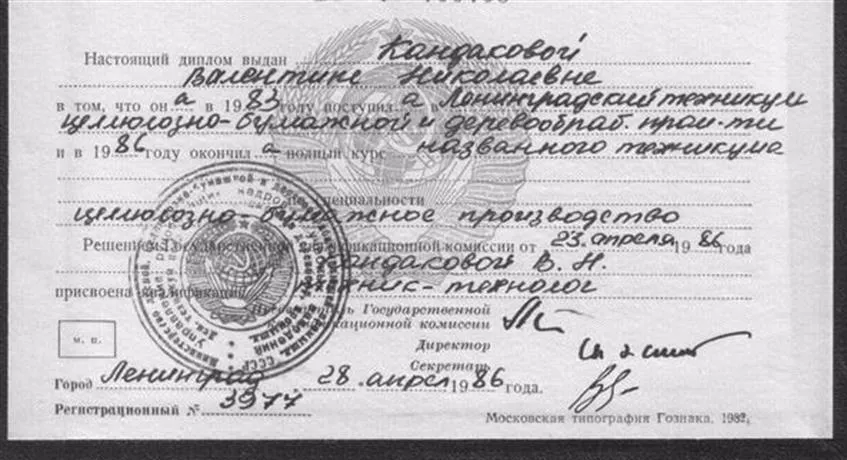 Настоящий диплом выдан Кандаковой
Валентине Николаевне
в том, что он а в 1983 году поступил а в Ленинградский техникум
целюлозно-бумажной и деревообраб. пром-ти
и в 1986 году окончил а полный курс названного техникума
по специальности
целюлозно-бумажное производство
Решением Государственной квалификационной комиссии от 23 апреля 1986 года
Кандаковой В. Н.
присвоена квалификация техник-технолог
Председатель Государственной
квалификационной комиссии
Директор
Секретарь
м. п.
Город Ленинград, 28 апрел 1986 года.
Регистрационный № 3977
Московская типография Гознака. 1982.